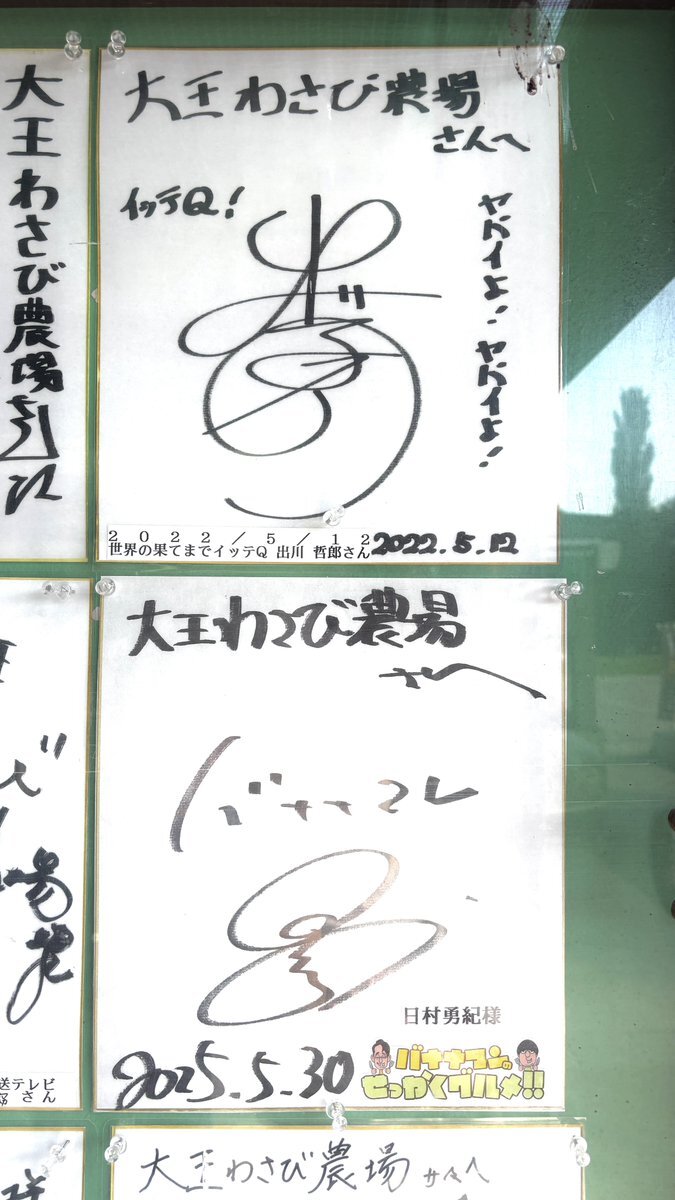 大王わさび農場
大王わさび農場
さんへ
イッテQ!
ヤバイよ!ヤバイよ!
2022/5/12
世界の果てまでイッテQ 出川 哲郎さん
2022.5.12
大王わさび農場
さんへ
バナナマン
日村勇紀様
2025.5.30
バナナマンの
せっかくグルメ!!
送テレビ
さん
大王わさび農場 さんへ